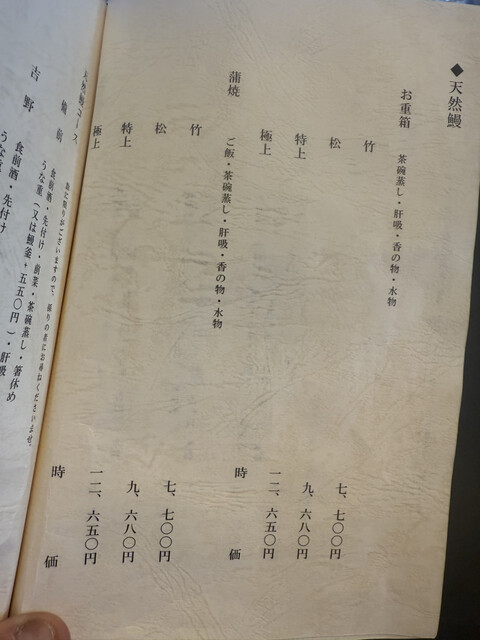 ◆天然鰻
お重箱 茶碗蒸し・肝吸・香の物・水物
竹 七、七〇〇円
松 九、六八〇円
特上 一二、六五〇円
極上 時価
蒲焼 ご飯・茶碗蒸し・肝吸・香の物・水物
竹 七、七〇〇円
松 九、六八〇円
特上 一二、六五〇円
極上 時価
天然鰻コース 数に限りがございますので、係りの者にお尋ねくださいませ。
食前酒・先付け・前菜・茶碗蒸し・箸休め
うな重(又は鰻釜+五五〇円)・肝吸
吉野 食前酒・先付け